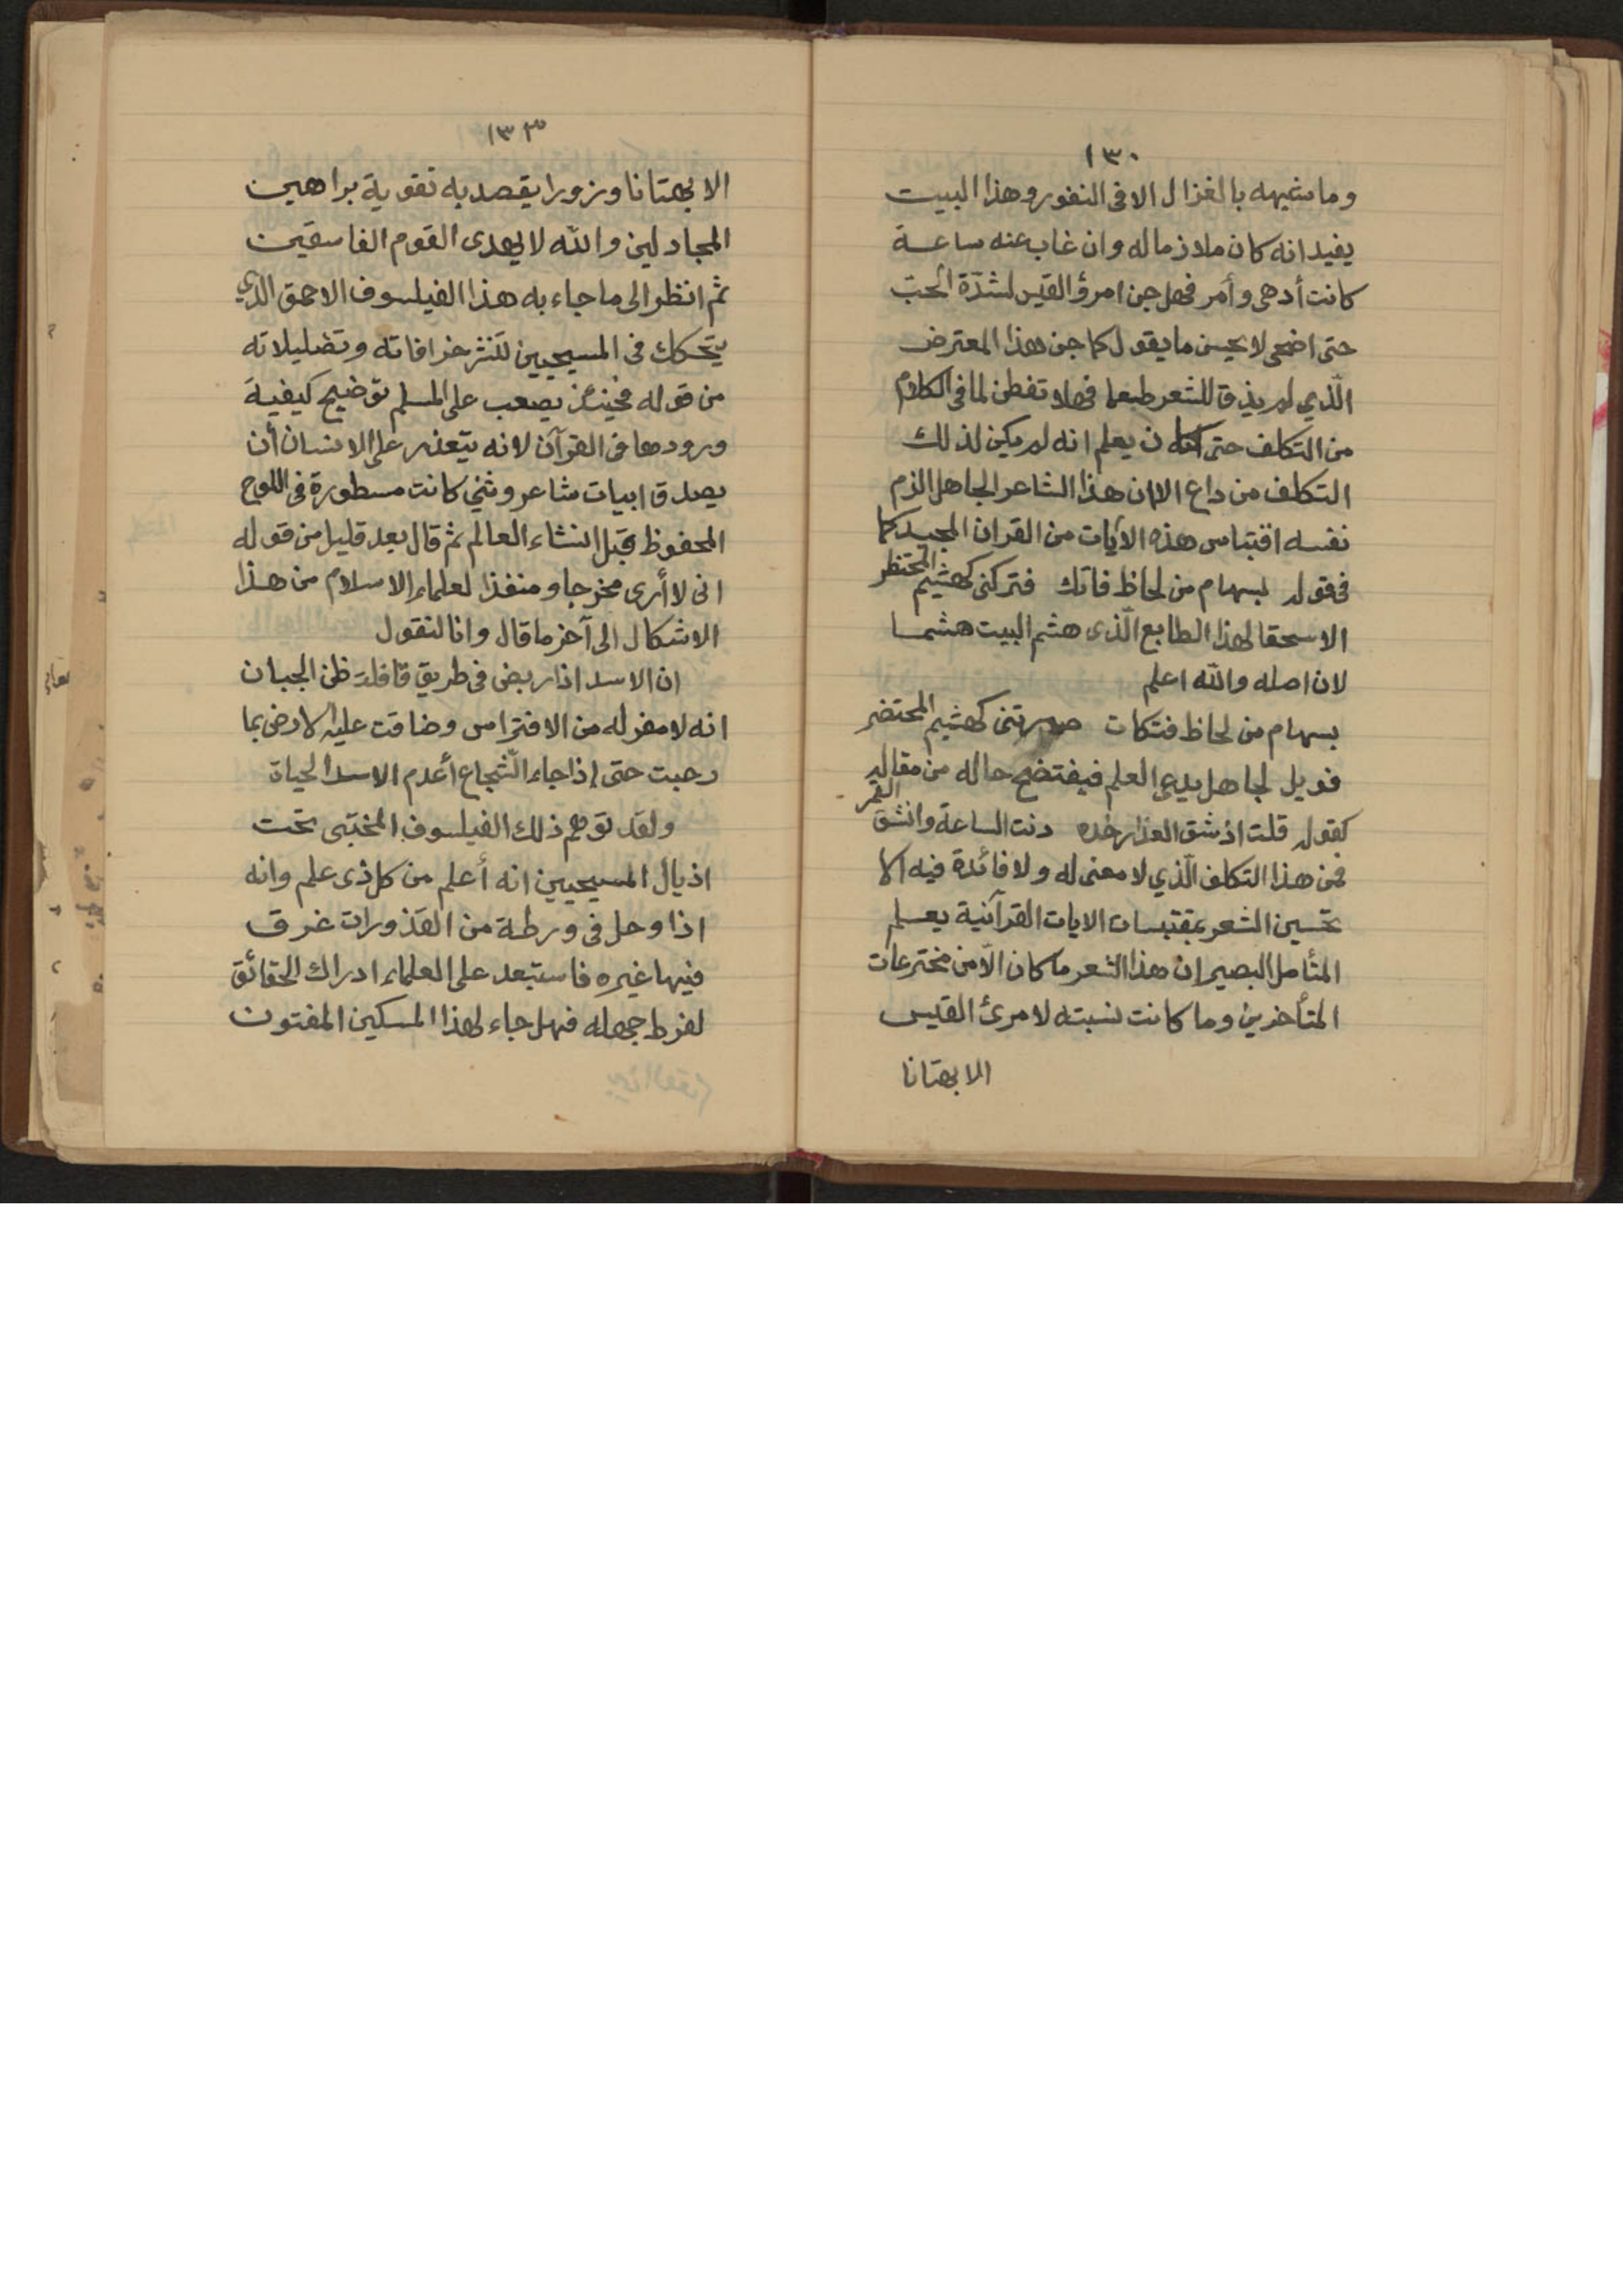 ١٣٠
وما شبهه بالغزال الا فى النفور وهذا البيت
يفيد انه كان ملازما له وان غاب عنه ساعة
كانت أدهى وأمر فهل جن امرؤ القيس لشدّة الحبّ
حتى اضحى لا يحسن ما يقول كما جن هذا المعترض
الّذي لم يذق للشعر طعما فهلا تفطن لما فى الكلام
من التكلف حتى ن يعلم انه لم يكن لذلك
التكلف من داع الا ان هذا الشاعر الجاهل الزم
نفسه اقتباس هذه الآيات من القران المجيد كما
فى قوله بسهام من لحاظ فاتك فتركنى كهشيم المحتظر
الا سحقا لهذا الطابع الّذى هشم البيت هشما
لان اصله والله اعلم
بسهام من لحاظ فتكات صيرتنى كهشيم المحتضر
فويل لجاهل يدعى العلم فيفتضح حاله من مقاله
كقوله قلت اذ شق العذار خده دنت الساعة وانشق القمر
فمن هذا التكلف الّذي لا معنى له ولا فائدة فيه الا
تحسين الشعر بمقتبسات الايات القرآنية يعلم
المتأمل البصير ان هذا الشعر ما كان الّا من مخترعات
المتأخرين وما كانت نسبته لامرئ القيس
الا بهتانا
١٣٣
الا بهتانا وزورا يقصد به تقوية براهين
المجادلين والله لا يهدى القوم الفاسقين
ثم انظر الى ما جاء به هذا الفيلسوف الاحمق الّذي
يتحكك فى المسيحيين لنشر خرافاته وتضليلاته
من قوله فحينئذ يصعب على المسلم توضيح كيفية
ورودها فى القرآن لانه يتعذر على الانسان أن
يصدق ابيات شاعر وثني كانت مسطورة فى اللوح
المحفوظ قبل انشاء العالم ثم قال بعد قليل من قوله
انى لا أرى مخرجا ومنفذا لعلماء الاسلام من هذا
الاشكال الى آخر ما قال وانا لنقول
ان الاسد اذا ربض فى طريق قافلة ظن الجبان
انه لا مفر له من الافتراس وضاقت عليه الارض بما
رحبت حتى إذا جاء الشجاع أعدم الاسد الحياة
ولقد توهم ذلك الفيلسوف المختبى تحت
اذيال المسيحيين انه أعلم من كل ذى علم وانه
اذا وحل فى ورطة من القذورات غرق
فيها غيره فاستبعد على العلماء ادراك الحقائق
لفرط جهله فهل جاء لهذا المسكين المفتون